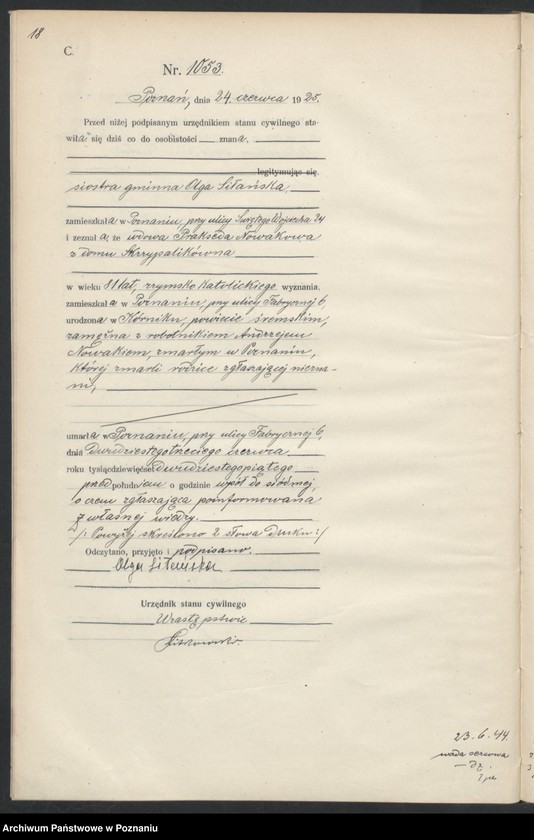 18
C.
Nr. 1053.
Poznań, dnia 24 czerwca 1925.
Przed niżej podpisanym urzędnikiem stanu cywilnego sta-
wiła się dziś co do osobistości znana,
legitymując się
siostra gminna Olga Sitańska,
zamieszkała w Poznaniu, przy ulicy Świętego Wojciecha 24
i zeznała, że wdowa Prakseda Nowakowa
z domu Skrzypalikówna
w wieku 81 lat, rzymsko katolickiego wyznania.
zamieszkała w Poznaniu, przy ulicy Fabrycznej 6
urodzona w Kórniku, powiecie śremskim,
zamężna z robotnikiem Andrzejem
Nowakiem, zmarłym w Poznaniu,
której zmarli rodzice zgłaszającej niezna-
ni,
umarła w Poznaniu, przy ulicy Fabrycznej 6,
dnia dwudziestego trzeciego czerwca
roku tysiącdziewięćset dwudziestegopiątego
przed południem o godzinie wpół do siódmej,
o czem zgłaszająca poinformowana
z własnej wiedzy.
/: Powyżej skreślono 2 słowa druku :/
Odczytano, przyjęto i podpisano.
Olga Sitańska
Urzędnik stanu cywilnego
W zastępstwie
23.6.44.
wada sercowa
Archiwum Państwowe w Poznaniu